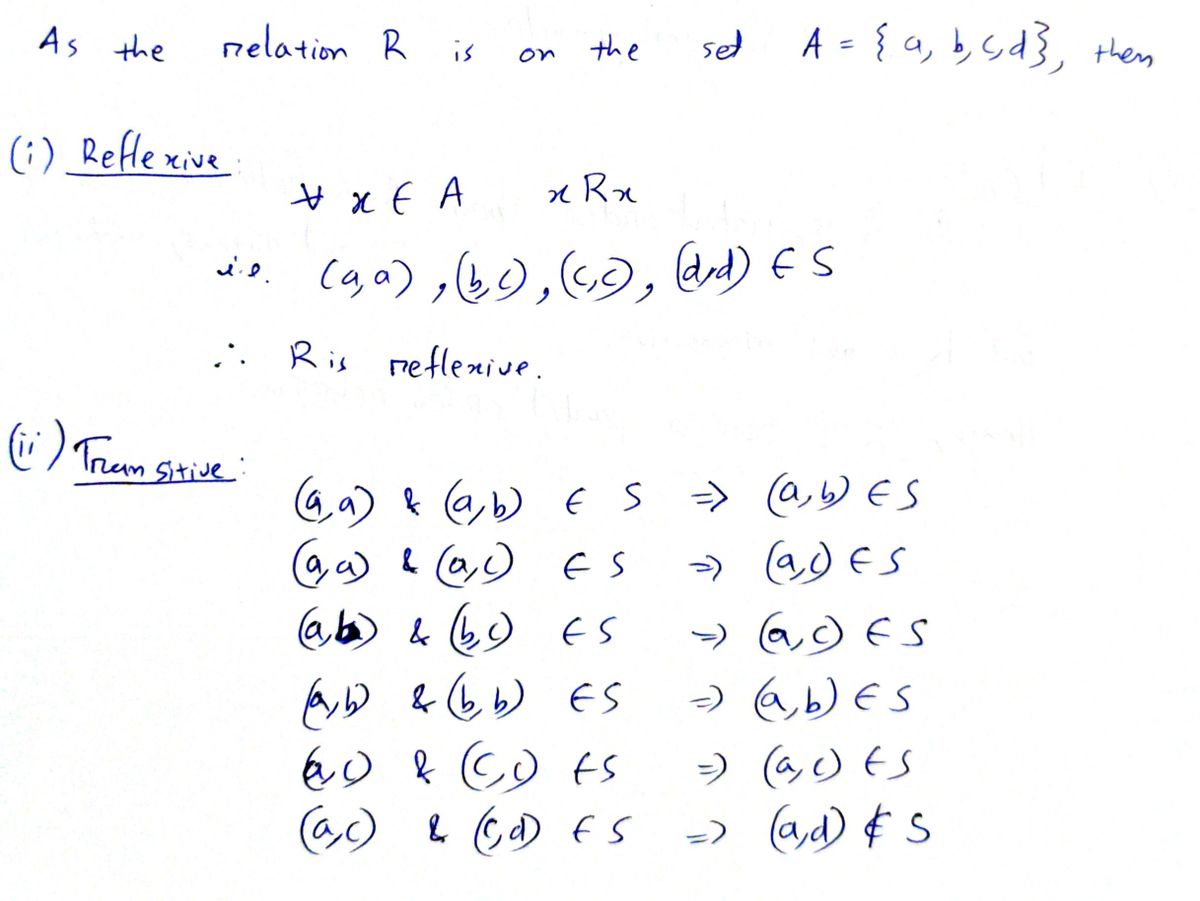 As the relation R is on the set A = { a, b, c, d}, then
(i) Reflexive:
∀ x ∈ A x R x
i.e. (a, a) , (b, c) , (c, c) , (d, d) ∈ S
∴ R is reflexive.
(ii) Transitive:
(a, a) & (a, b) ∈ S ⇒ (a, b) ∈ S
(a, a) & (a, c) ∈ S ⇒ (a, c) ∈ S
(a, b) & (b, c) ∈ S ⇒ (a, c) ∈ S
(a, b) & (b, b) ∈ S ⇒ (a, b) ∈ S
(a, c) & (c, c) ∈ S ⇒ (a, c) ∈ S
(a, c) & (c, d) ∈ S ⇒ (a, d) ∉ S